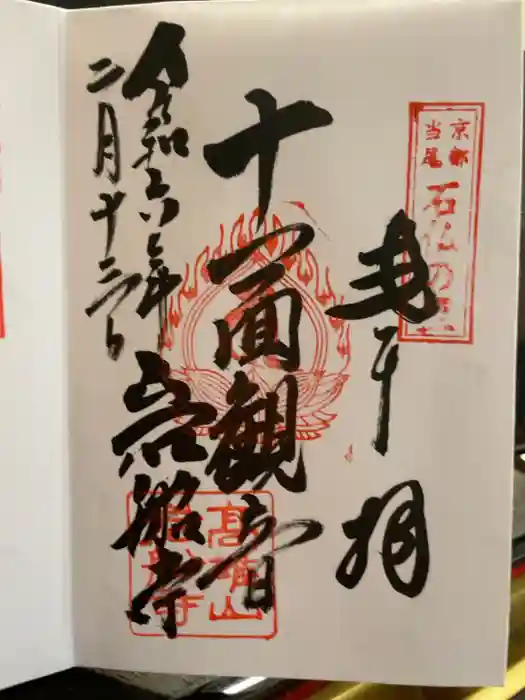 京都
当尾
石仏の里
奉拝
十一面観音
岩船寺
令和六年
二月十三日
高雄山
岩船寺